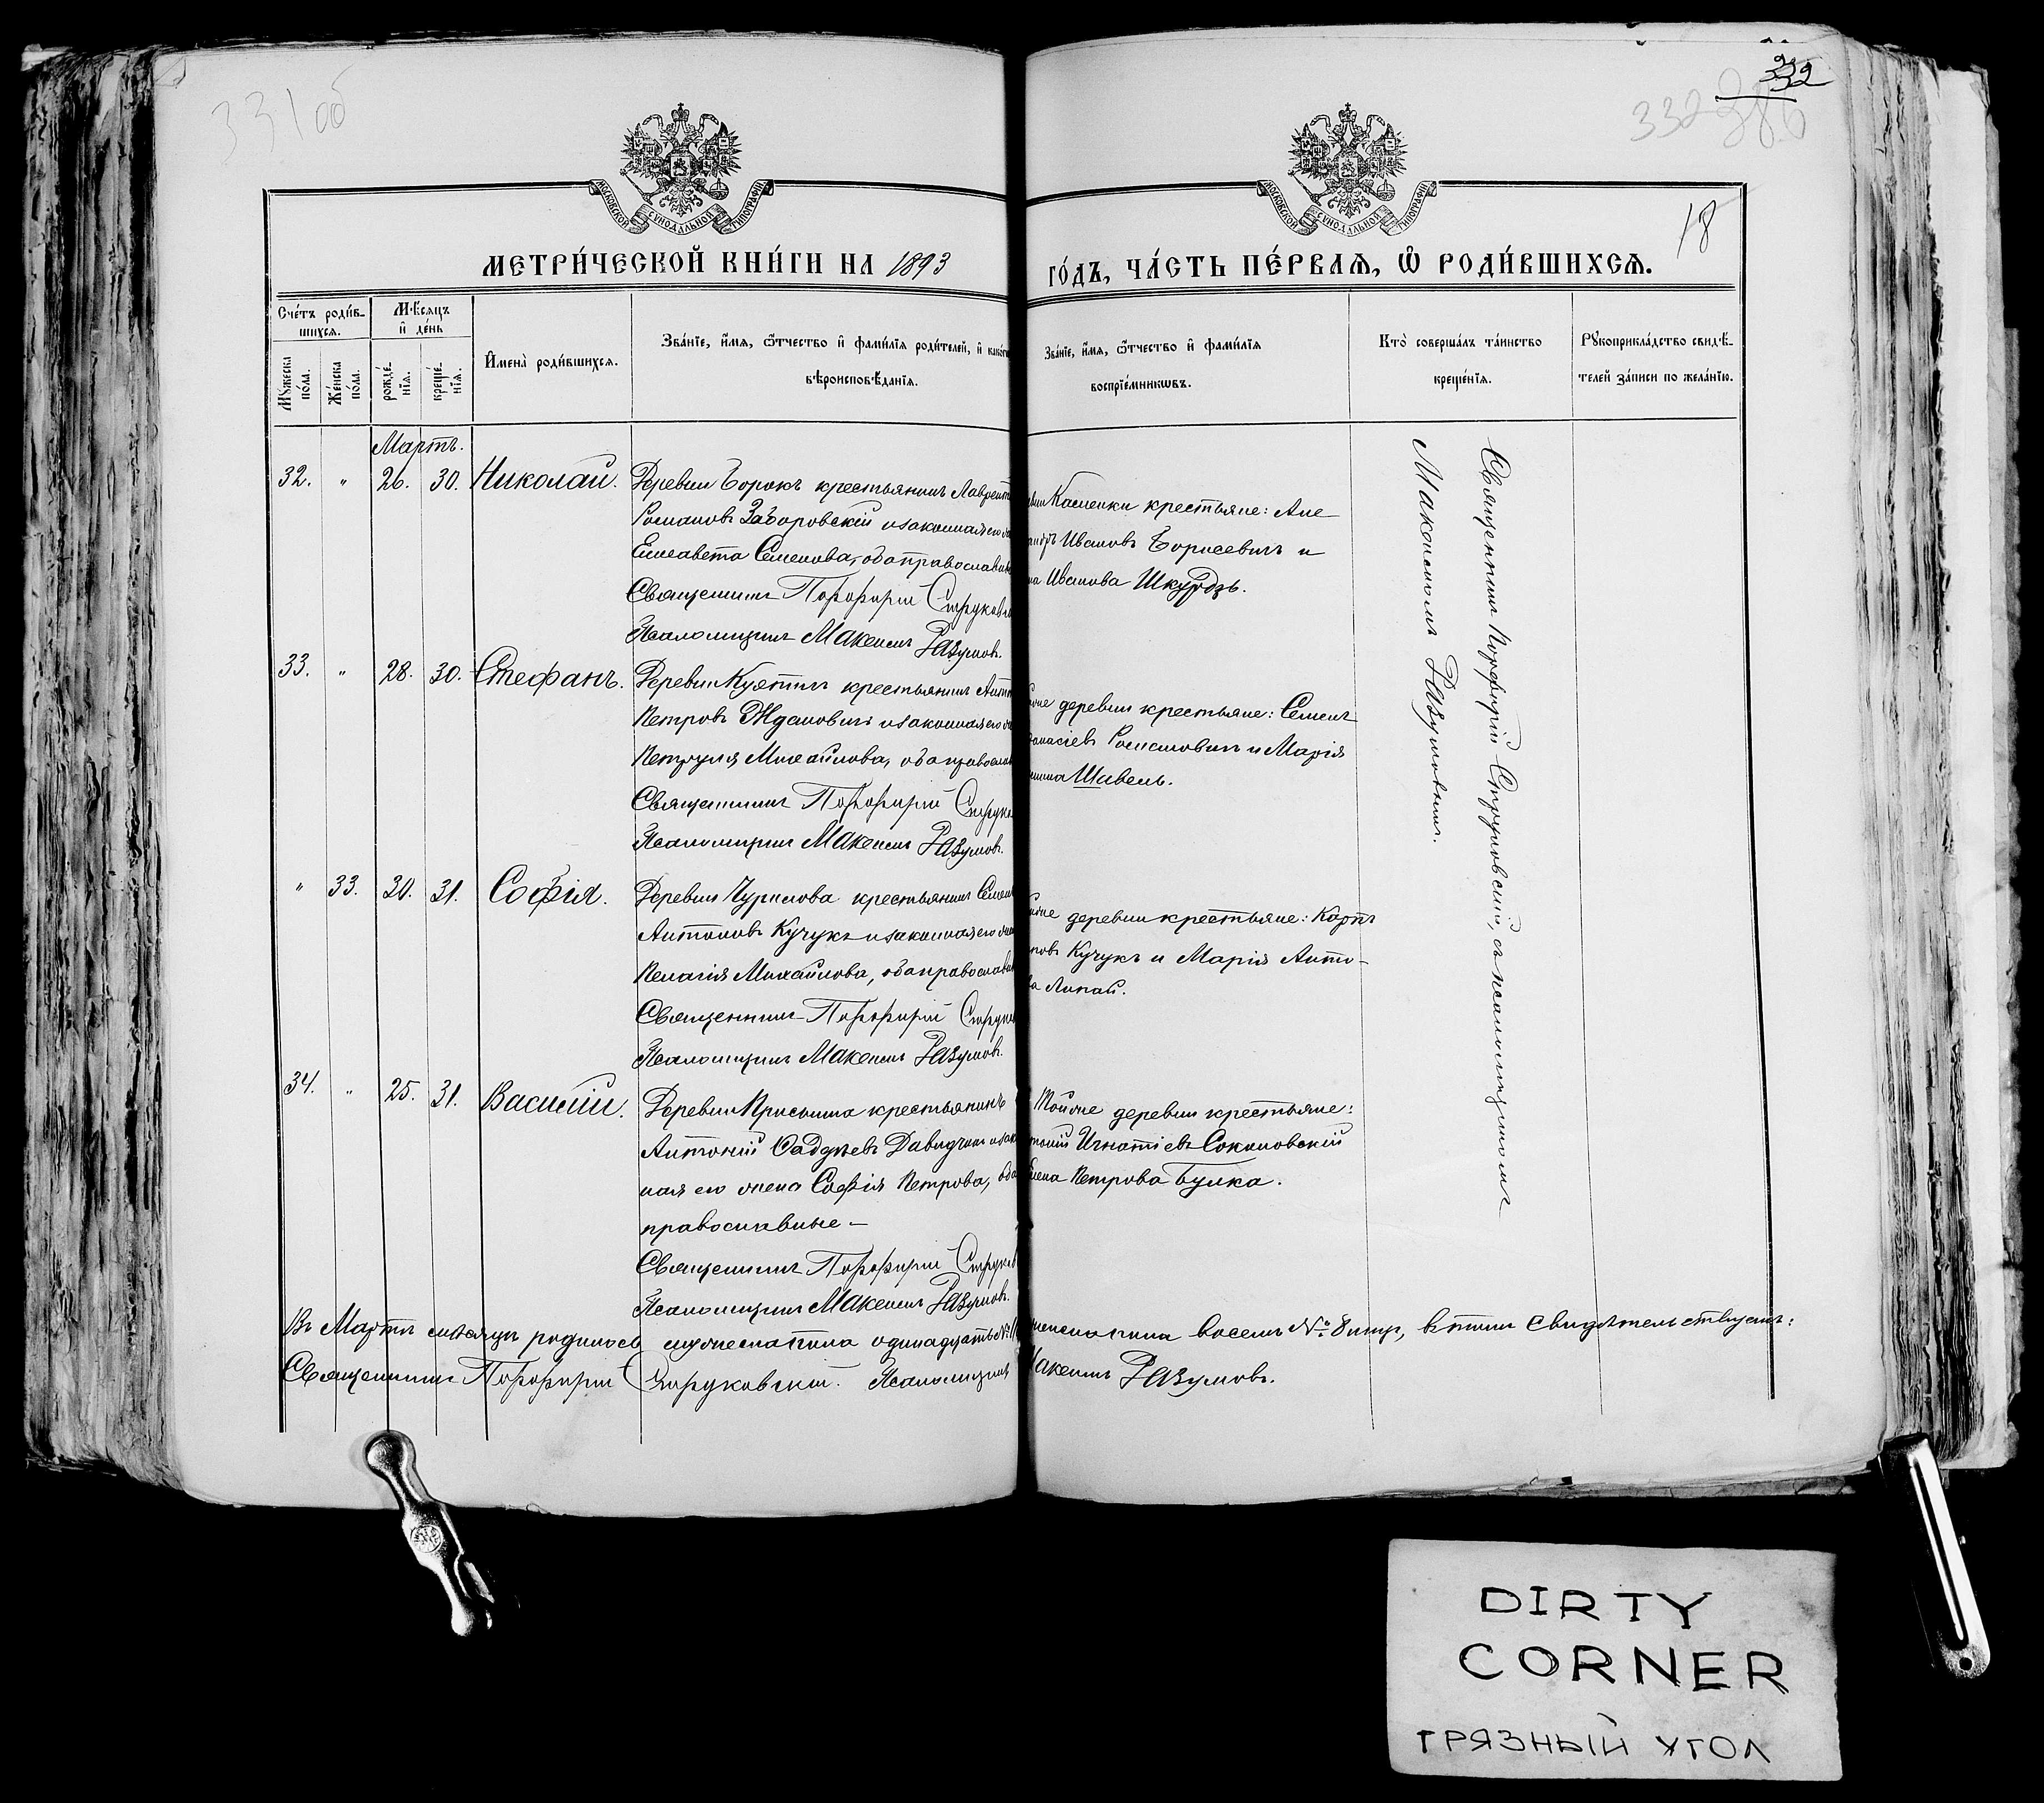 331об
332
332
286
18
МОСКОВСКОЙ СУНОДАЛЬНОЙ ТИПОГРАФІИ
МОСКОВСКОЙ СУНОДАЛЬНОЙ ТИПОГРАФІИ
МЕТРИ́ЧЕСКОЙ КНИ́ГИ НА 1893
ГО́ДЪ, ЧА́СТЬ ПЕ́РВАѦ, Ѡ РОДИ́ВШИХСѦ.
Сче́тъ роди́в-
шихсѧ.
Мѣ́сѧцъ
и де́нь
Му́жеска
по́ла.
Же́нска
по́ла.
рожде́-
нїѧ.
креще́-
нїѧ.
Имена̀ роди́вшихсѧ.
Зва́нїе, и́мѧ, ѻ҆́тчество и҆ фами́лїѧ роди́телей, и҆ како́гѡ
вѣроисповѣ́данїѧ.
Зва́нїе, и́мѧ, ѻ҆́тчество и҆ фами́лїѧ
воспрїе́мникωвъ.
Кто̀ соверша́лъ та́инство
креще́нїѧ.
Рꙋкоприкла́дство свидѣ́-
телей за́писи по жела́нїю.
Мартъ.
32. " 26. 30. Николай.
Деревни Борокъ крестьянинъ Лаврент
Романовъ Заборовскій и законная его
Елисавета Семенова, оба православн
Священникъ Порфирій Струковс
Псаломщикъ Максимъ Разумовъ.
Каменки крестьяне: Але
Ивановъ Борисевичъ и
Иванова Шкурдзь.
33. " 28. 30. Стефанъ.
Деревни Куятичъ крестьянинъ Анто
Петровъ Ждановичъ и законная его
Петруня Михайлова, оба православ
Священникъ Порфирій Струк
Псаломщикъ Максимъ Разумовъ.
деревни крестьяне: Семенъ
анасіевъ Романовичъ и Марія
Шавель.
" 33. 30. 31. Софія.
Деревни Чурилова крестьянинъ Семен
Антоновъ Кучукъ и законная его
Пелагія Михайлова, оба православн
Священникъ Порфирій Струк
Псаломщикъ Максимъ Разумовъ.
деревни крестьяне: Карпъ
повъ Кучукъ и Марія Анто-
ва Липай.
34. " 25. 31. Василій.
Деревни Присынка крестьянинъ
Антоній Фаддѣевъ Давидчикъ и зак
ная его жена Софія Петрова, оба
православные —
Священникъ Порфирій Струков
Псаломщикъ Максимъ Разумовъ.
Той же деревни крестьяне:
тоній Игнатіевъ Соколовскій
Елена Петрова Булка.
Священникъ Порфирій Струковскій, съ псаломщикомъ
Максимомъ Разумовымъ.
Въ Мартѣ мѣсяцѣ родилось мужеска пола одинадцать №11
женска пола восемь № 8мъ, въ томъ свидѣтельствуемъ:
Священникъ Порфирій Струковскій. Псаломщикъ
Максимъ Разумовъ.
DIRTY
CORNER
ГРЯЗНЫЙ УГОЛ